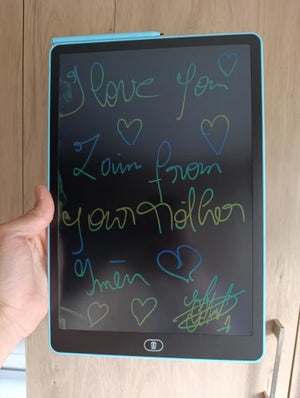 I love You
Zain from
your Mother
Imèn